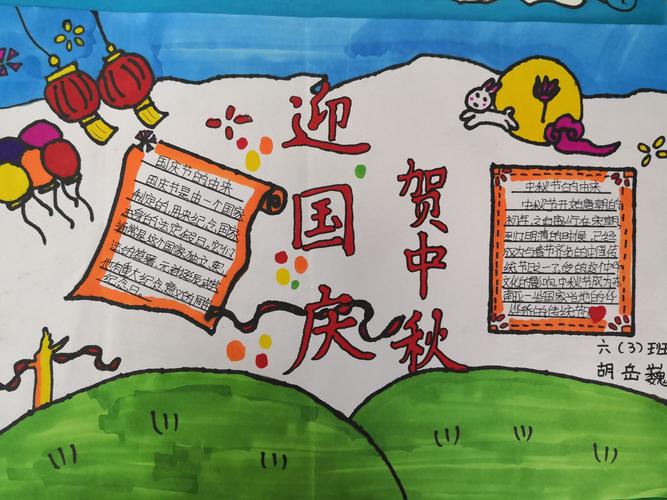 迎国庆
贺中秋
国庆节的由来
国庆节是由一个国家
制定的用来纪念国家
本身的法定假日。它们
通常是这个国家独立、宪
法的签署、元首诞辰或其
他有重大纪念意义的周年
纪念日。
中秋节的由来
中秋节开始唐朝的
初年,之自盛行在宋朝
到了明清的时候,已经
成为与春节齐名的中国传
统节日之一。受的
文化的影响,中秋节成为东
南亚一些国家当地的
传统节日
六(3)班
胡岳巍